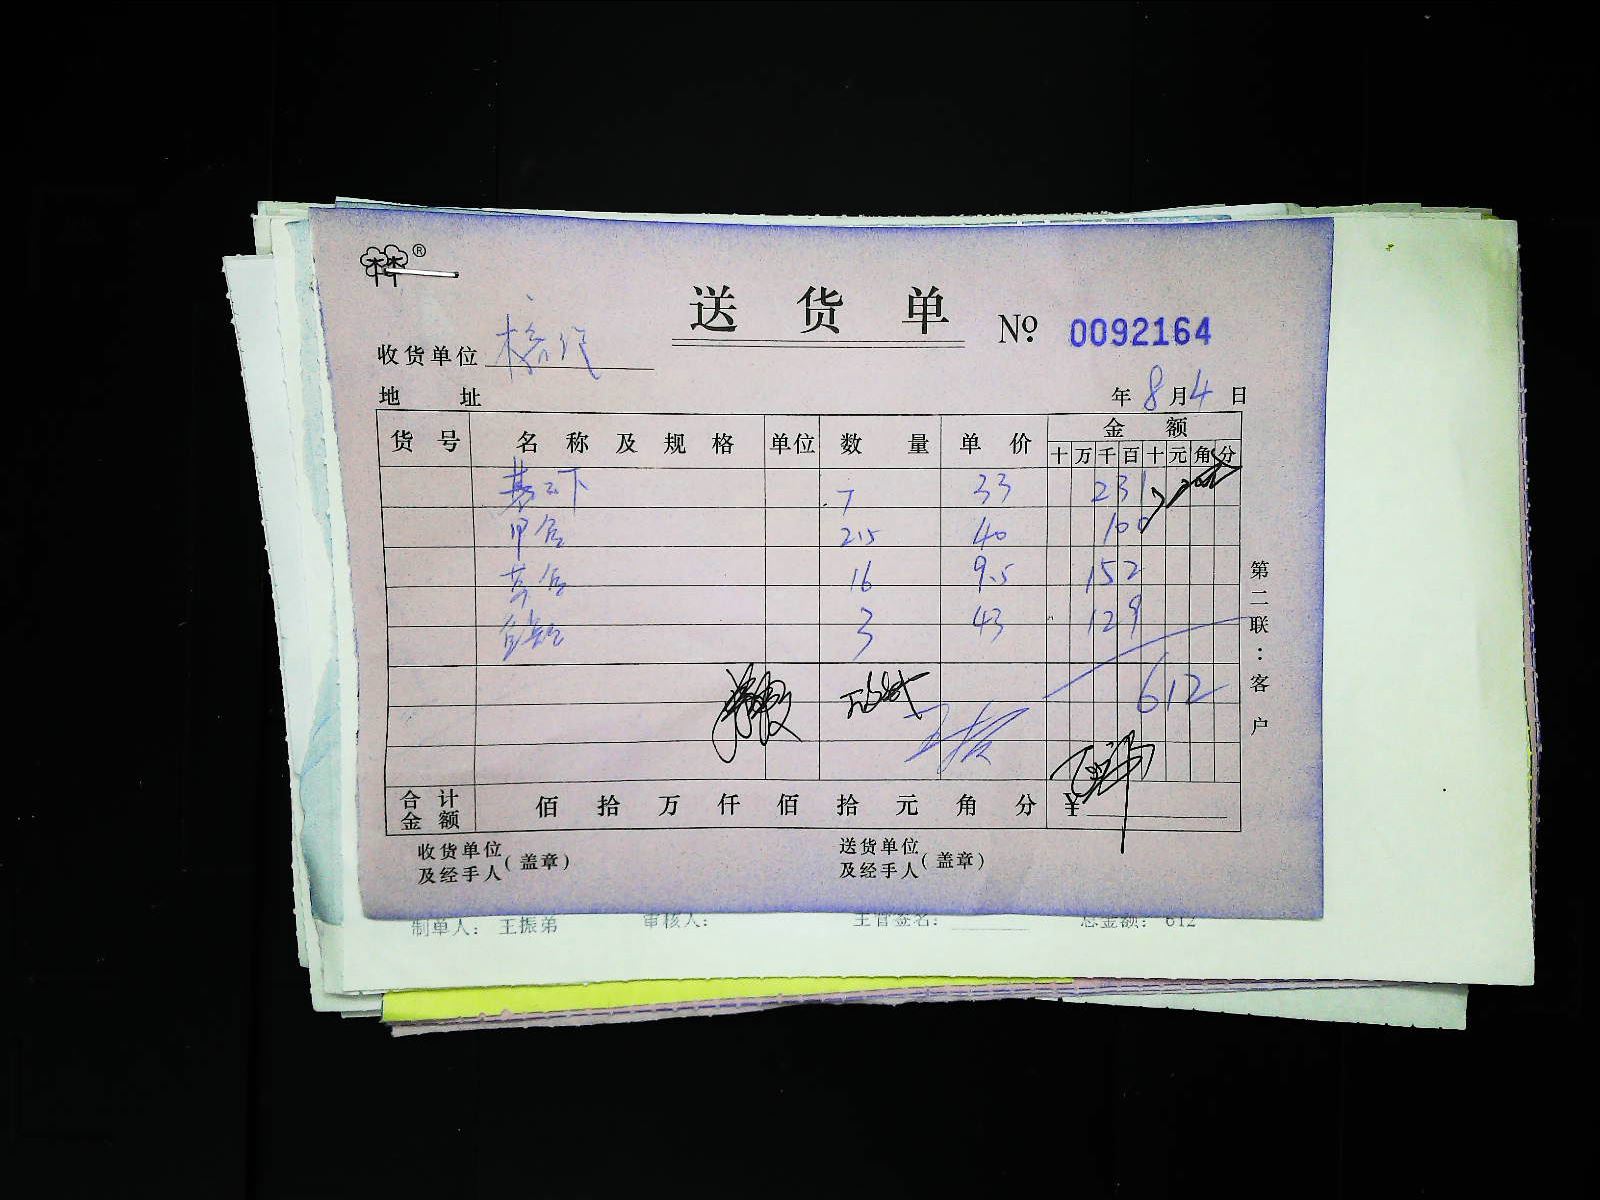 ®
送货单 № 0092164
收货单位
地 址 年 8 月 4 日
货号 名称及规格 单位 数量 单价 金额
十 万 千 百 十 元 角 分
基 下 7 33 231
甲鱼 2.5 40 100
草鱼 16 9.5 152
3 43 129
612
合计金额 佰 拾 万 仟 佰 拾 元 角 分 ¥
收货单位及经手人(盖章) 送货单位及经手人(盖章)
第二联：客户
制单人： 王振弟 审核人： 主管签名： 总金额： 612